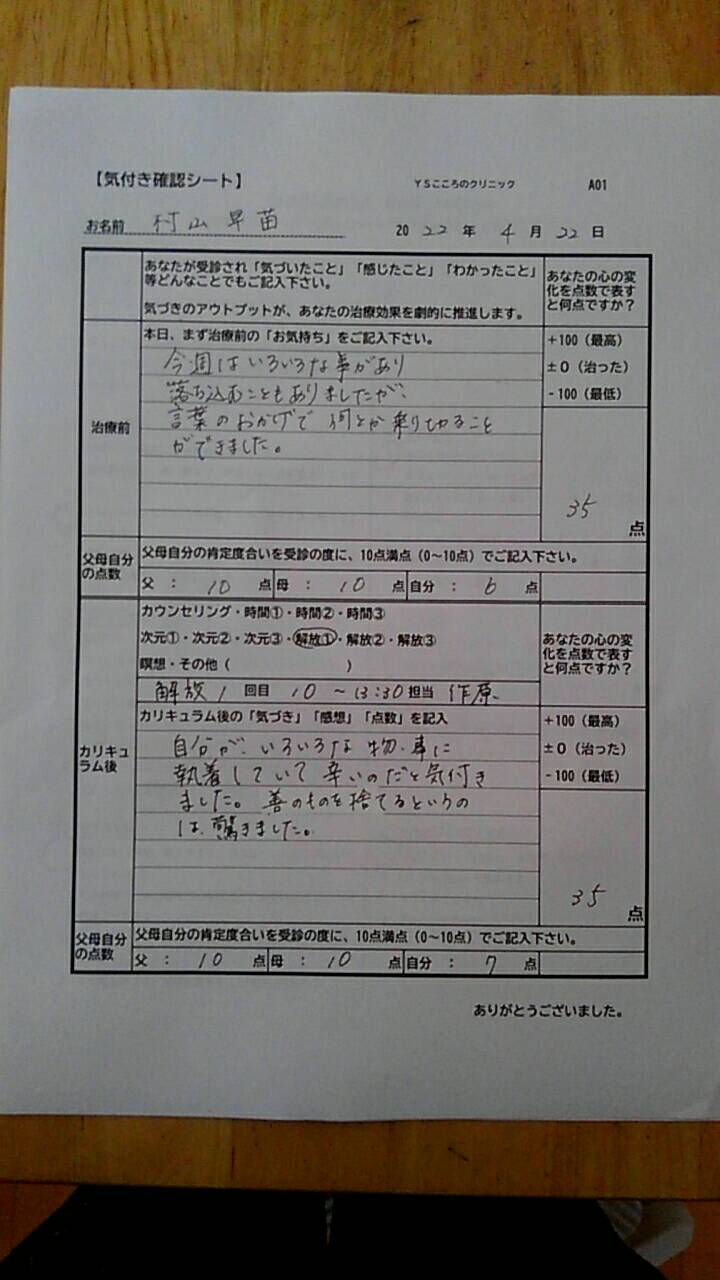 【気付き確認シート】 YSこころのクリニック A01
お名前 村山早苗 2022年4月22日
あなたが受診され「気づいたこと」「感じたこと」「わかったこと」
等どんなことでもご記入下さい。
気づきのアウトプットが、あなたの治療効果を劇的に推進します。
あなたの心の変
化を点数で表す
と何点ですか？
治療前
本日、まず治療前の「お気持ち」をご記入下さい。
今週はいろいろな事があり
落ち込むこともありましたが、
言葉のおかげで何とか乗り切ること
ができました。
+100（最高）
±0（治った）
-100（最低）
35点
父母自分
の点数
父母自分の肯定度合いを受診の度に、10点満点（0〜10点）でご記入下さい。
父：10点 母：10点 自分：6点
カリキュ
ラム後
カウンセリング・時間①・時間②・時間③
次元①・次元②・次元③・解放①・解放②・解放③
瞑想・その他（ ）
解放1回目 10〜13:30担当 作原
あなたの心の変
化を点数で表す
と何点ですか？
カリキュラム後の「気づき」「感想」「点数」を記入
自分が、いろいろな物・事に
執着していて辛いのだと気付き
ました。善のものを捨てるというの
は、驚きました。
+100（最高）
±0（治った）
-100（最低）
35点
父母自分
の点数
父母自分の肯定度合いを受診の度に、10点満点（0〜10点）でご記入下さい。
父：10点 母：10点 自分：7点
ありがとうございました。